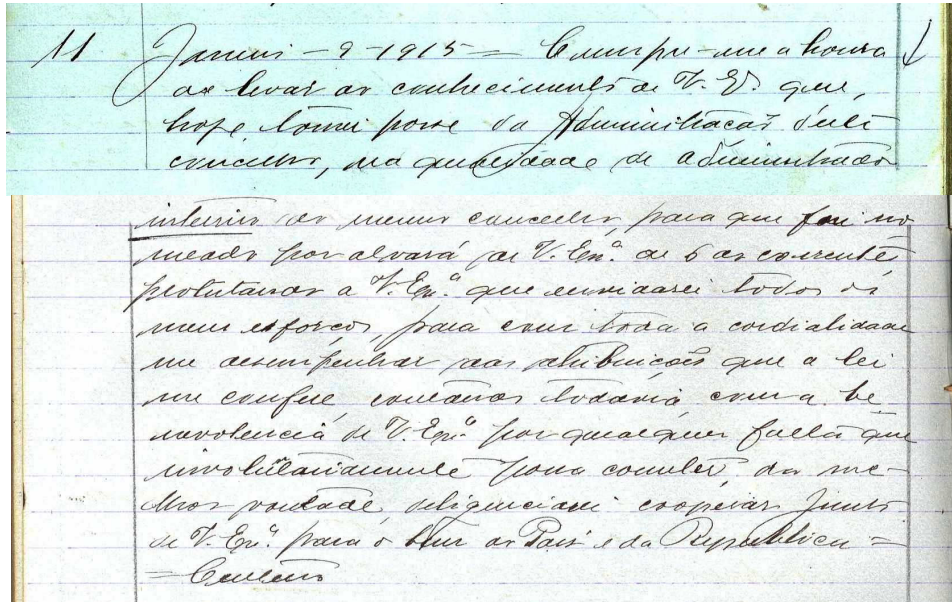 11 Janeiro - 9 - 1915 = Cumpre-me a honra
de levar ao conhecimento de V. Exª. que,
hoje tomei posse da Administração deste
concelho, na qualidade de administrador
interino do mesmo concelho, para que fui no
meado por alvará de V. Exª. de 6 do corrente,
protestando a V. Exª. que envidarei todos os
meus esforços, para com toda a cordialidade
me desempenhar das atribuições que a lei
me confere, contando todavia, com a be
nevolencia de V. Exª. por qualquer falta que
involutariamente possa cometer, da me-
lhor vontade, deligenciarei cooperar junto
de V. Exª. para o bem do Pais e da Republica =
=